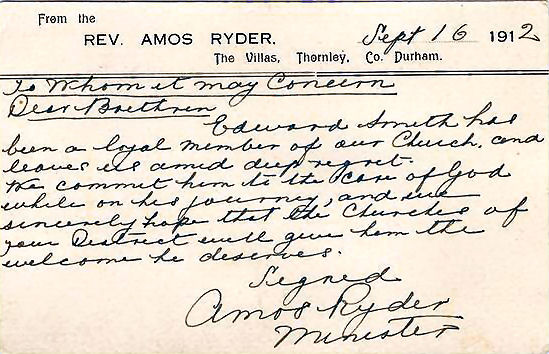 From the
REV. AMOS RYDER.
Sept 16 1912
The Villas, Thornley, Co. Durham.
To Whom it may Concern
Dear Brethren
Edward Smith has
been a loyal member of our Church, and
leaves us amid deep regret.
We commit him to the care of God
while on his journey, and we
sincerely hope that the Churches of
your District will give him the
welcome he deserves.
Signed
Amos Ryder
Minister